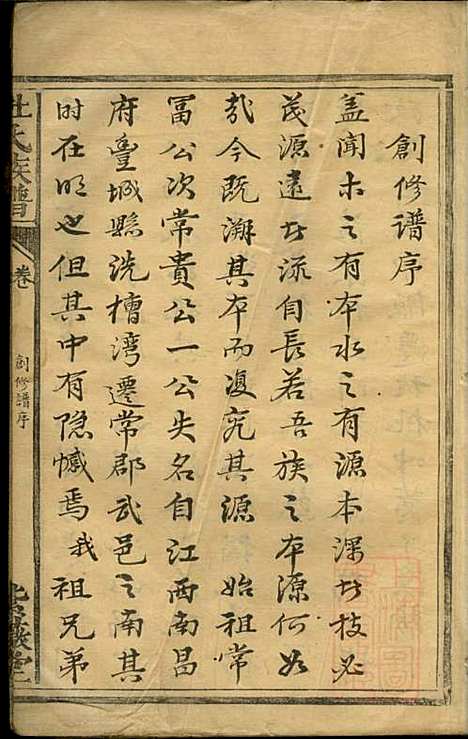 創修譜序
蓋聞木之有本水之有源本深者枝必
茂源遠者流自長若吾族之本源何如
哉今既溯其本而復究其源 始祖常
富公次常貴公一公失名自江西南昌
府豐城縣洗槽灣遷常郡武邑之南其
時在明也但其中有隱憾焉我祖兄弟
杜氏族譜
卷
創修譜序
堂